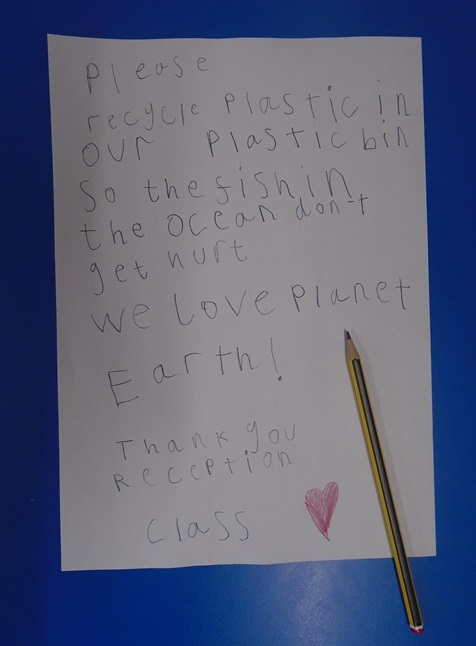 Please
recycle plastic in
our plastic bin
So the fish in
the ocean don't
get hurt
We love planet
Earth!
Thank you
Reception
Class